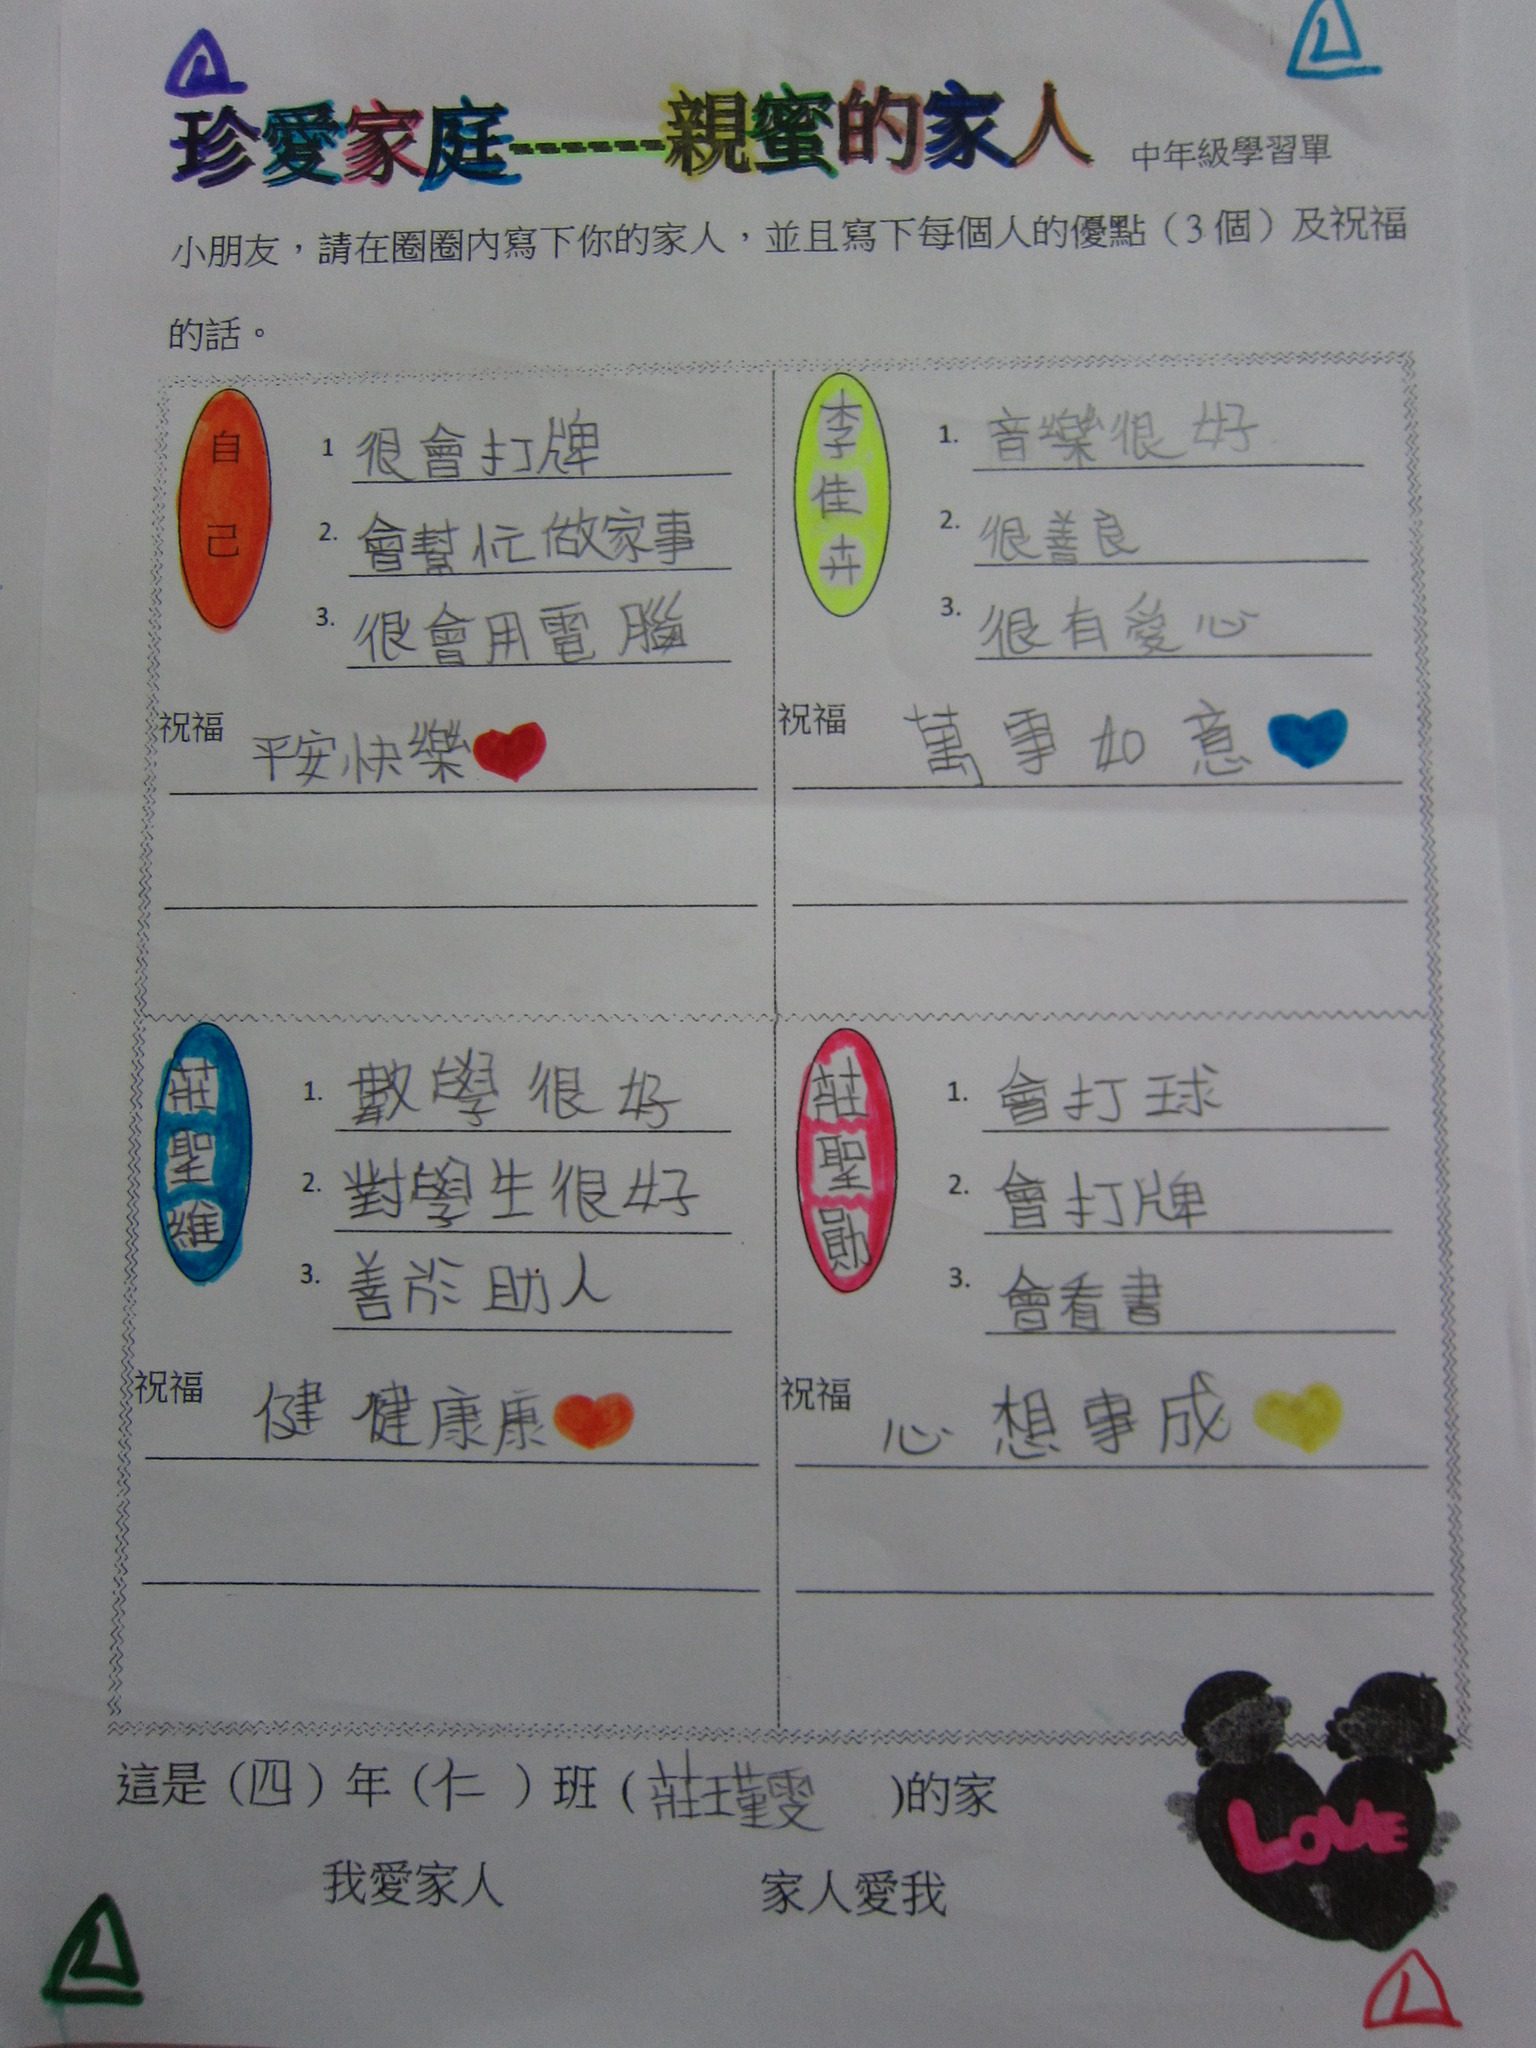 珍愛家庭------親蜜的家人 中年級學習單
小朋友，請在圈圈內寫下你的家人，並且寫下每個人的優點（3個）及祝福
的話。
自己
1 很會打牌
2. 會幫忙做家事
3. 很會用電腦
祝福 平安快樂
李佳卉
1. 音樂很好
2. 很善良
3. 很有愛心
祝福 萬事如意
莊聖維
1. 數學很好
2. 對學生很好
3. 善於助人
祝福 健健康康
莊聖勛
1. 會打球
2. 會打牌
3. 會看書
祝福 心想事成
這是（四）年（仁 ）班（莊瑾雯 )的家
我愛家人 家人愛我
LOVE